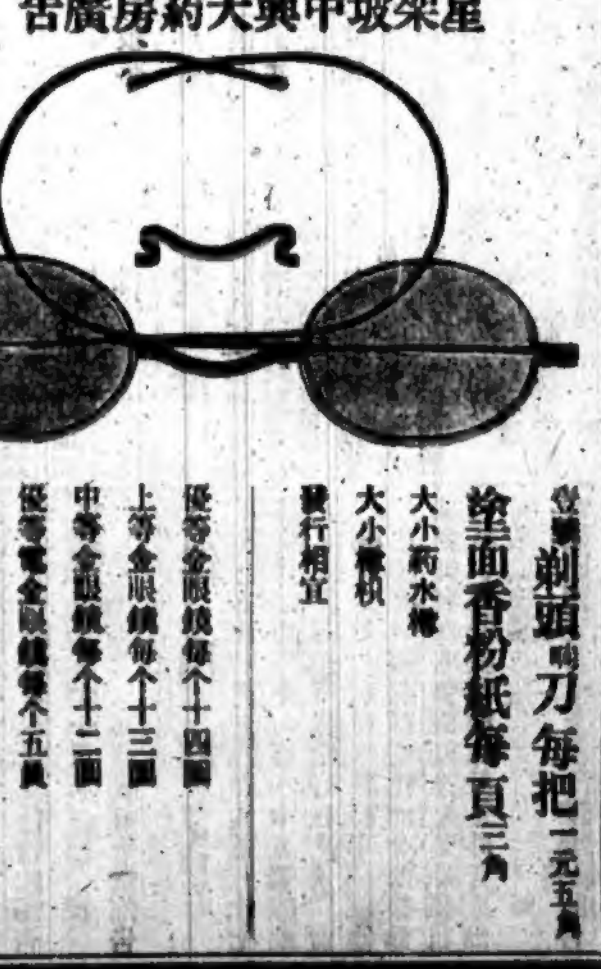 星架坡中興大葯房廣告
壹號剃頭刀每把一元五角
塗面香粉紙每頁三角
大小葯水
大小
發行相宜
優等金眼鏡每个十四圓
上等金眼鏡每个十三圓
中等金眼鏡每个十二圓
優等電金眼鏡每个五員